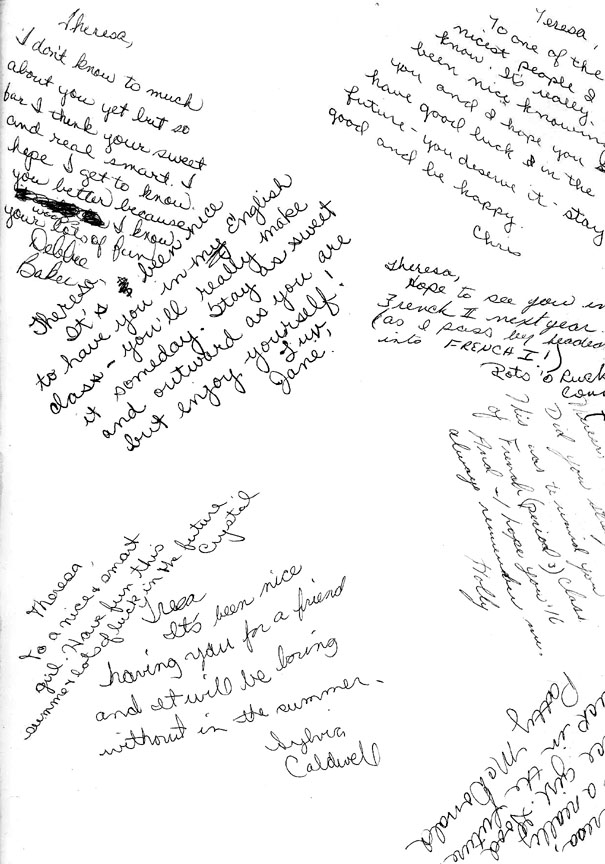 Theresa,
I don't know to much
about you yet but so
far I think your sweet
and real smart. I
hope I get to know
you better because
I know
your lots of fun
Debbie
Baker
Teresa,
To one of the
nicest people I
know. It's really
been nice knowing
you and I hope you
have good luck in the
future - you deserve it - stay
good and be happy.
Chris
Theresa,
It's been nice
to have you in my English
class - you'll really make
it someday. Stay as sweet
and outward as you are
but enjoy yourself!
Luv,
Jane
Theresa,
Hope to see you in
French II next year.
(as I pass by
into FRENCH I!)
Lots O Luck
Did you
This was to remind you
of French (period 3) class
And I hope you'll
always remember me.
Holly
Theresa,
To a nice & smart
girl. Have fun this
summer & lots of luck in the future.
Crystal
Tresa
It's been nice
having you for a friend
and it will be boring
without in the summer.
Sylvia
Caldwell
a really
girl. Good
luck in the future
Patty McDonald